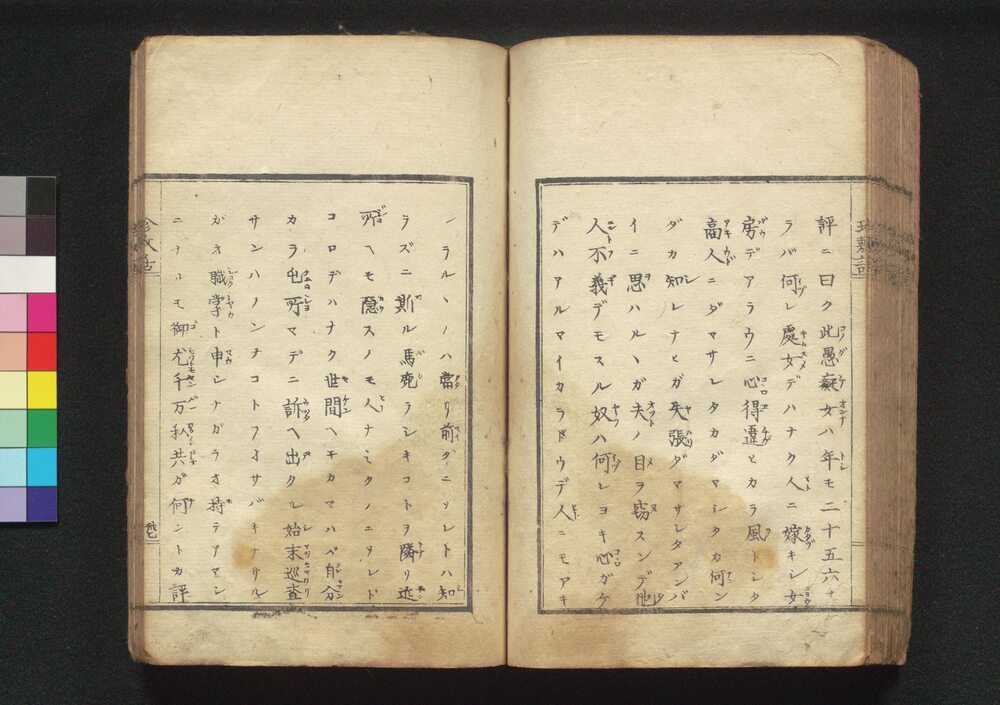 評ニ曰ク此愚癡女ハ年モ二十五六ナ
ラバ何レ處女デハナク人ニ嫁キシ女
房デアラウニ心得違ヒカラ風トシタ
高人ニダマサレタカダマシタカ何ン
ダカ知レナヒガ矢張ダマサレタアンバ
イニ思ハルヽガ夫ノ目ヲ窃スンデ他
人不義デモスル奴ハ何レヨキ心ガケ
デハアルマイカラドウデ人ニモアキ
ラルヽノハ當リ前ダニソレトハ知
ラズニ斯ル馬鹿ラシキコトヲ隣リ近
所ヘモ隠スノモ人ナミタノニソレド
コロデハナク世間ヘモカマハベ自分
カラ屯所マデニ訴ヘ出タレ始末巡査
サンハノンナコトフオサバキナサル
ガオ職掌ト申シナガラオ持テアマシ
ニナルモ御尤千万私共ガ何ントカ評